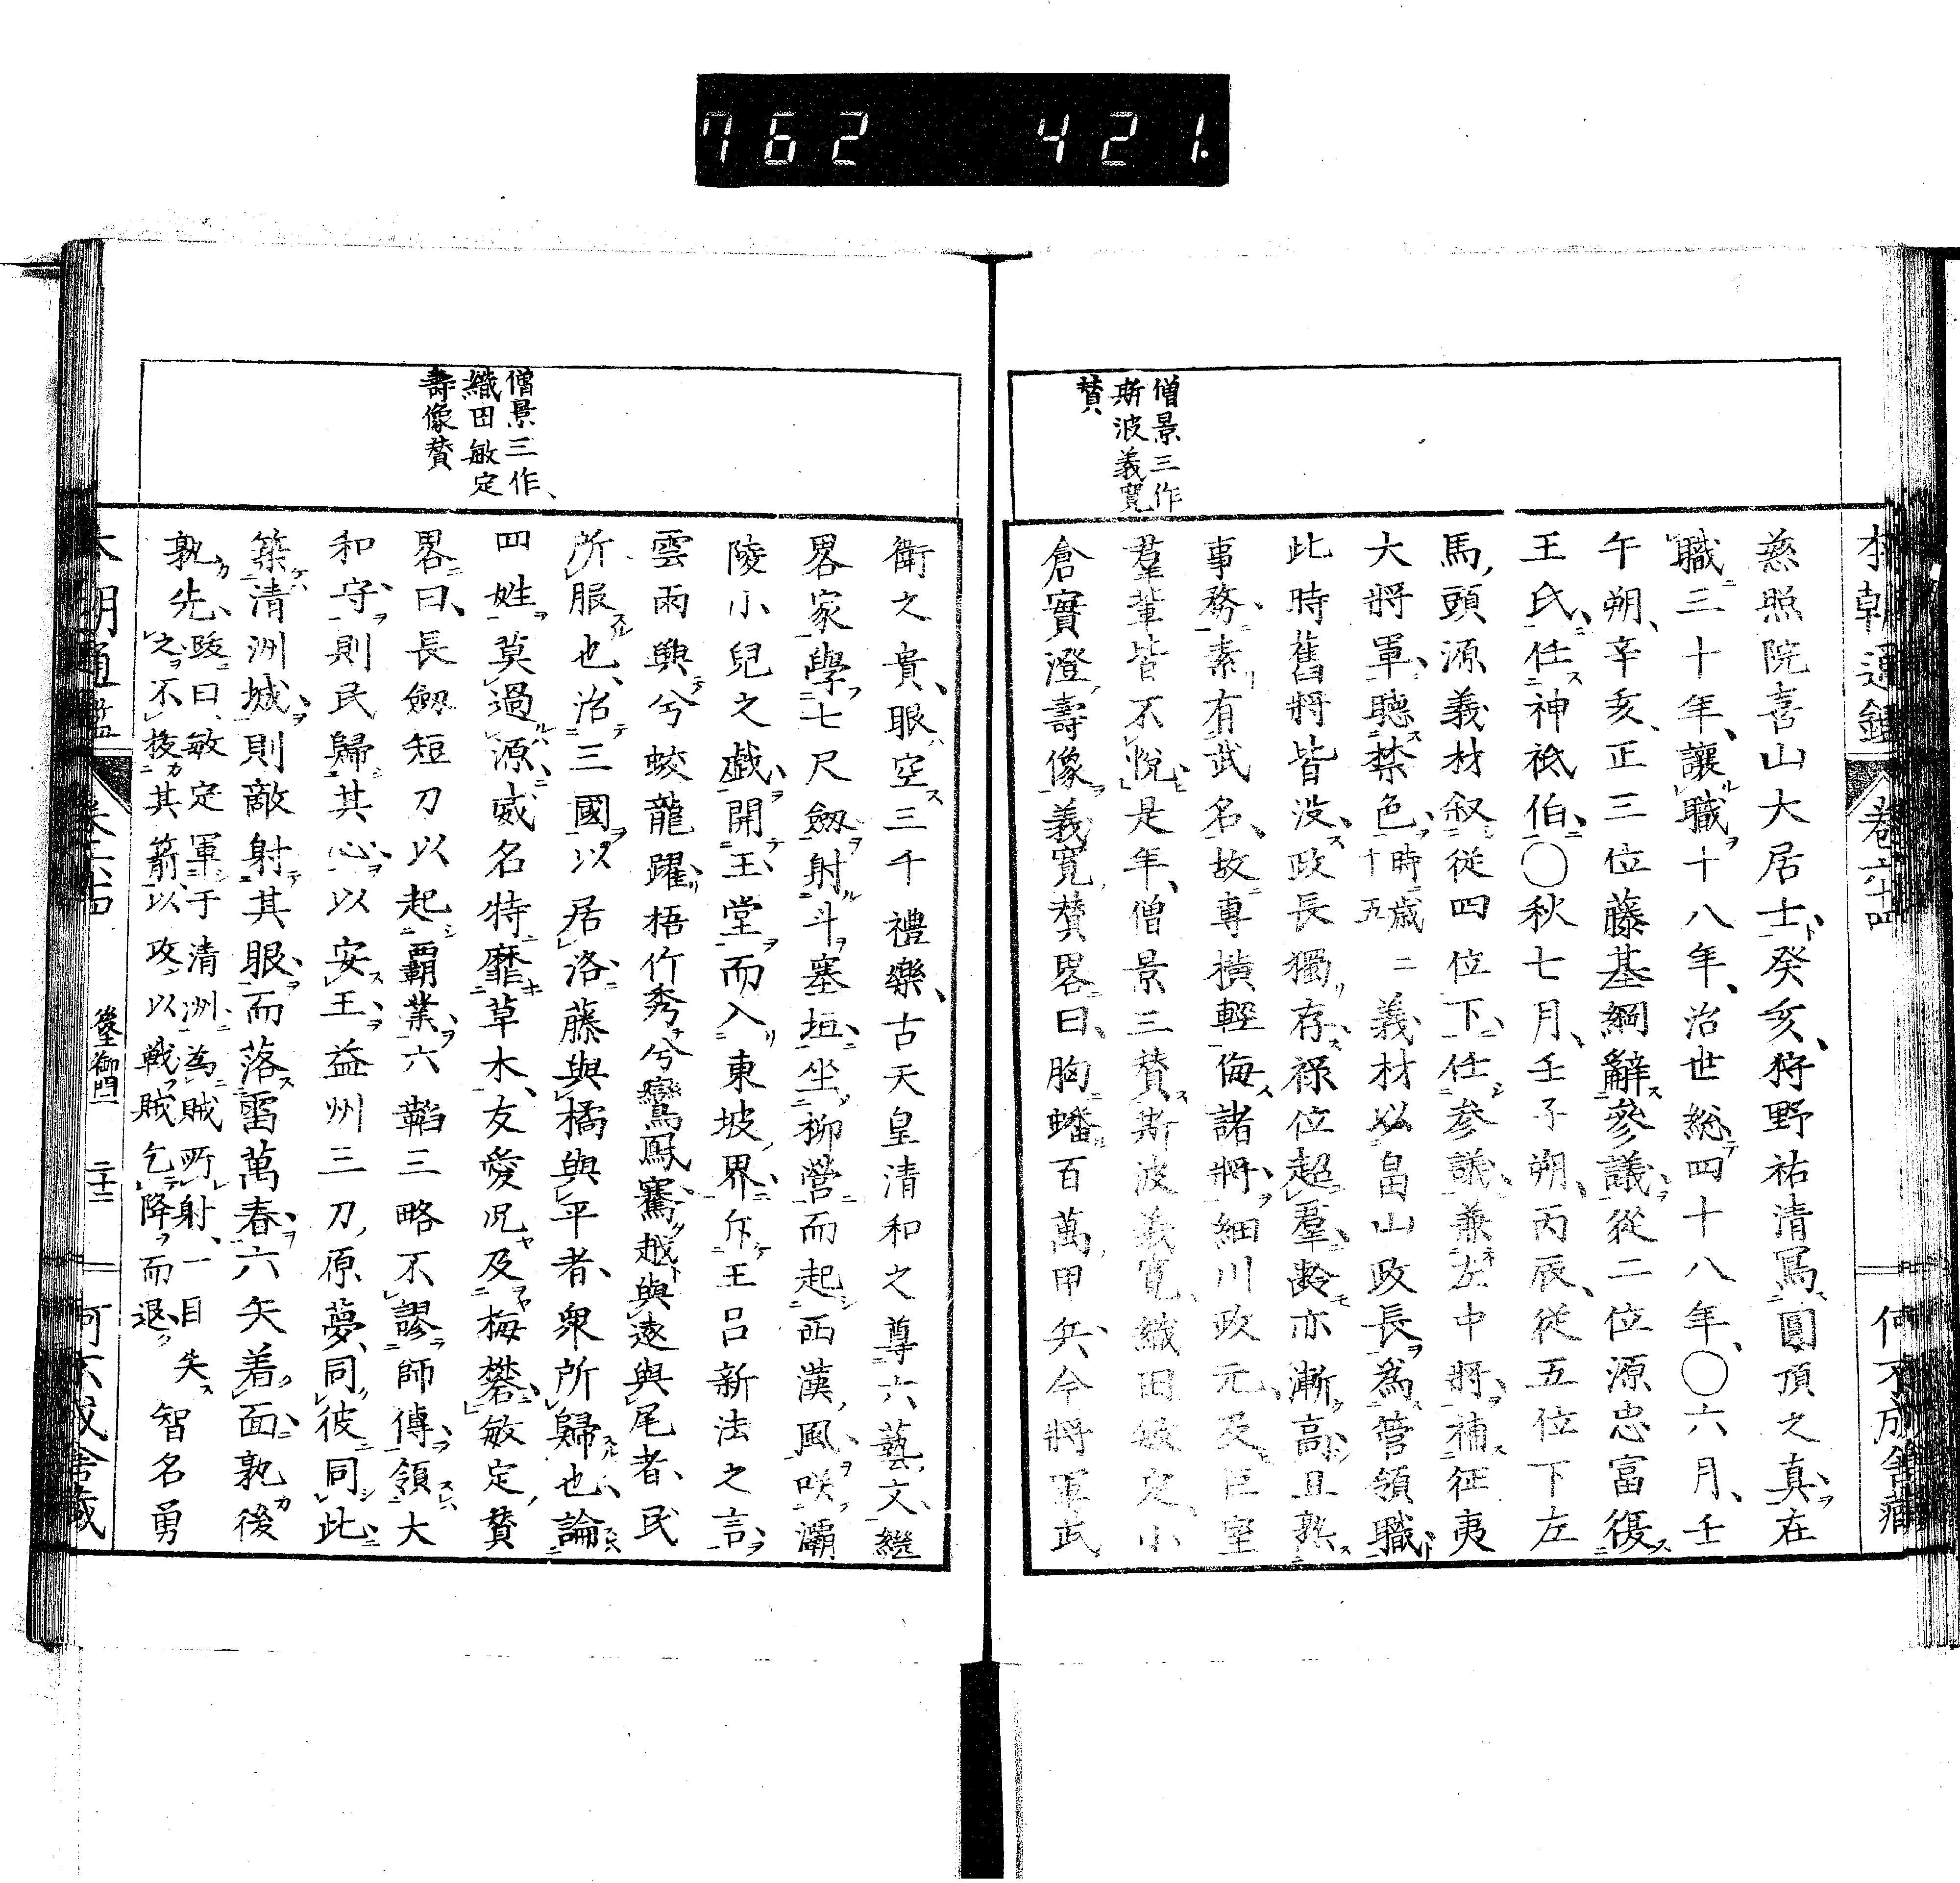 762 421.
本朝通鑑 卷六十四
僧景三作
斯波義寬
賛
慈照院喜山大居士癸亥狩野祐清寫圓頂之真在
職三十年讓職十八年治世総四十八年〇六月壬
午朔辛亥正三位藤基綱辭參議從二位源忠富復
王氏任神祇伯〇秋七月壬子朔丙辰從五位下左
馬頭源義材叙從四位下任参議兼左中將補征夷
大將軍聽禁色時歳二十五義材以畠山政長為管領職
此時舊將皆没政長獨存祿位超羣齡亦漸高且熟
事務素有武名故專橫輕侮諸將細川政元及巨室
羣輩皆不悅是年僧景三賛斯波義寬織田敏定小
倉實澄壽像義寬賛畧曰胸蟠百萬甲兵今將軍武
衛之貴眼空三千禮樂古天皇清和之尊六藝文繼
畧家學七尺劔射斗塞垣坐柳營而起西漢風咲灞
陵小兒之戯開玉堂而入東坡界斥王呂新法之言
雲雨興兮蛟龍躍梧竹秀兮鸞鳳騫越與遠與尾者民
所服也治三國以居洛藤與橘與平者衆所歸也論
四姓莫過源威名特靡草木友愛况及梅礬敏定賛
畧曰長劔短刀以起覇業六韜三略不謬師傅領大
和守則民歸其心以安王益州三刀原夢同彼同此
築清洲城則敵射其眼而落雷萬春六矢着面孰後
孰先賛曰敏定軍于清洲為賊所射一目失之不拔其箭以攻以戰賊乞降而退智名勇
僧景三作
織田敏定
壽像賛
本朝通鑑 卷六十四 後土御門 二十二